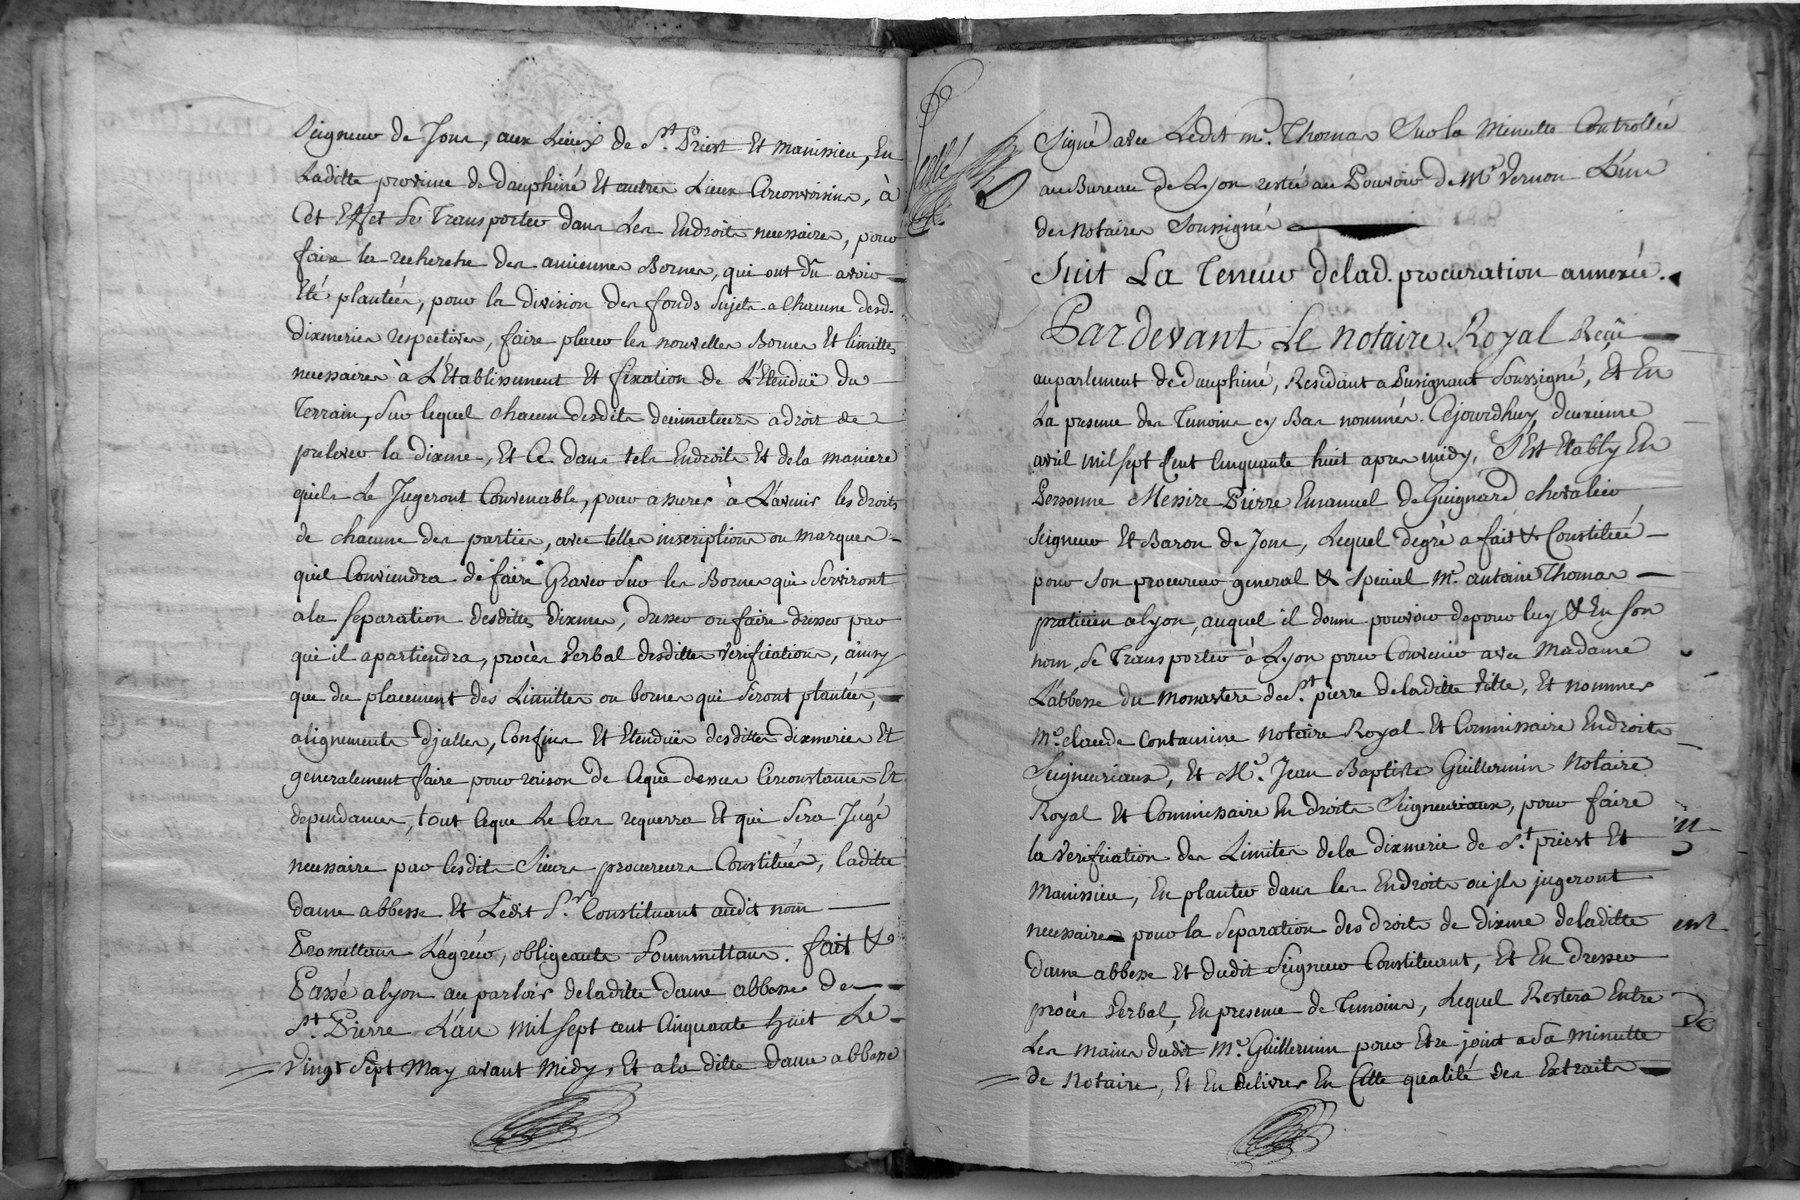 Seigneur de Jons, aux Lieux de S.t Priest Et manissieu, En
Laditte province de dauphiné Et autres Lieux Circonvoisins, à
Cet Effet Se Transporter dans Les Endroits necessaires, pour
faire la recherche des anciennes Bornes, qui ont dû avoir
Eté plantées, pour la division des fonds Sujets a Chacune desd.
dixmeries respectives, faire placer les nouvelles Bornes Et limittes
necessaires à L'Etablissement Et fixation de L'Etenduë du
Terrain, Sur lequel chacun desdits decimateurs a droit de
prelever la dixme, Et Ce dans tels Endroits Et de la maniere
quils Le Jugeront Convenable, pour assurer à L'avenir les droits
de chacune des parties, avec telles inscriptions ou marques
quil Conviendra de faire Graver Sur les Bornes qui Serviront
a la Separation desdittes dixmes, dresser ou faire dresser par
qui il apartiendra, procès Verbal desdittes Verifications, ainsy
que du placement des Limittes ou bornes qui Seront plantées,
alignements d'jcelles, Confins Et Etenduës desdittes dixmeries Et
generalement faire pour raison de Ceque dessus Circonstances Et
dependances, tout Ceque Le Cas requerra Et qui Sera Jugé
necessaire par lesdits Sieurs procureurs Constitués, laditte
dame abbesse Et Ledit S.r Constituant audit nom
Promettans L'agréer, obligeants Soummittans. fait &
Passé a lyon au parloir deladitte dame abbesse de
S.t Pierre L'an mil sept cent Cinquante huit Le
Vingt Sept May avant Midy, Et a la ditte dame abbesse
Signé avec Ledit m.e Thomas Sur la Minutte Controllée
au Bureau de Lyon restée au Pouvoir de M.e Vernon L'un
des Notaires Soussignés
Suit La Teneur delad. procuration annexée.
Pardevant Le Notaire Royal Reçu
au parlement de dauphiné, Residant a Pusignant Soussigné, Et En
La presence des Temoins cy Bas nommés. Cejourdhuy deuxieme
avril mil sept Cent Cinquante huit apres midy, S'Est Etably En
Personne Messire Pierre Emanuel de Guignard chevalier
Seigneur Et Baron de Jons, Lequel degré a fait & Constitué
pour Son procureur general & special M.e antoine Thomas
praticien a lyon, auquel il donne pouvoir depour luy & En Son
nom, Se Transporter à Lyon pour Convenir avec Madame
L'abbesse du Monastere de S.t pierre deladitte Ville, Et nommer
M.e claude Contamine Notaire Royal Et Commissaire En droits
Seigneuriaux, Et M.e Jean Baptiste Guillermin Notaire
Royal Et Commissaire En droits Seigneuriaux, pour faire
la Verification des Limites dela dixmerie de S.t priest Et
Manissieu, En planter dans les Endroits ou jls jugeront
necessaires pour la Separation des droits de dixme deladitte
dame abbesse Et dudit Seigneur Constituant, Et En dresser
procès Verbal, En presence de Temoins, Lequel Restera Entre
Les mains dudit M.e Guillermin pour Etre joint a Sa Minutte
de Notaire, Et En delivrer En Cette qualité des Extraits